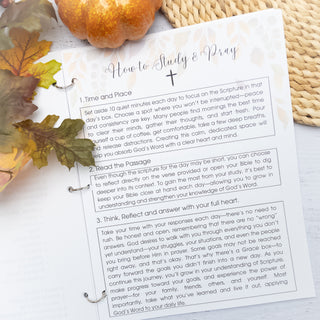 How to Study & Pray
1. Time and Place
Set aside 10 quiet minutes each day to focus on the Scripture in that
day's box. Choose a spot where you won't be interrupted—peace
and consistency are key. Many people find mornings the best time
to clear their minds, gather their thoughts, and start fresh. Pour
a cup of coffee, get comfortable, take a few deep breaths,
and release distractions. Creating this calm, dedicated space will
help you absorb God's Word with a clear heart and mind.
2. Read the Passage
Even though the scripture for the day may be short, you can choose
to reflect directly on the verse provided or open your Bible to dig
deeper into its context. To gain the most from your study, it's best to
keep your Bible close at hand each day—allowing you to grow in
understanding and strengthen your knowledge of God's Word.
3. Think, Reflect and answer with your full heart.
Take your time with your responses each day—there's no need to
rush. Be honest and open, remembering that there are no "wrong"
answers. God desires to walk with you through everything you've
yet—understand your struggles, your situations, and even the people
you bring before Him in prayer. Some goals may not be reached
right away, and that's okay. That's why there's a Grace box—to
carry forward the goals you didn't finish into a new day. As you
continue this journey, you'll grow in your understanding of Scripture,
make progress toward your goals, and experience the power of
prayer—for your family, friends, others, and yourself. Most
importantly, take what you've learned and live it out, applying
God's Word to your daily life.